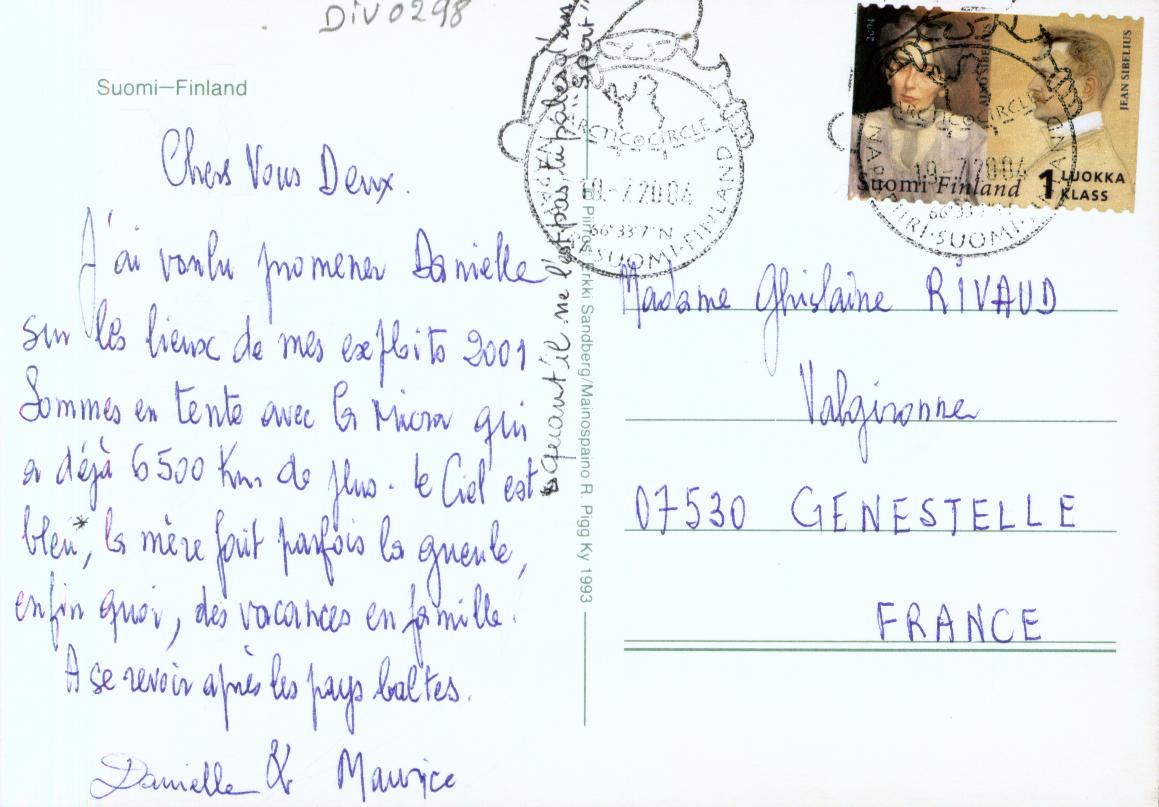 DIV0298
Suomi–Finland
Chers Vous Deux.
J'ai voulu promener Danielle
sur les lieux de mes exploits 2001
Sommes en tente avec la Micra qui
a déjà 6500 Km de plus. le Ciel est
bleu*, la mère fait parfois la gueule,
enfin quoi, des vacances en famille.
A se revoir après les pays baltes.
Danielle & Maurice
quant il ne l'est pas, tu
"sport"
Piirros Erkki Sandberg/Mainospaino R. Pigg Ky 1993
ARCTIC CIRCLE
19.-7.2004
66°33'7"N
SUOMI-FINLAND
2004
AINO SIBELIUS
JEAN SIBELIUS
Suomi Finland
1 LUOKKA
KLASS
ARCTIC CIRCLE
19.-7.2004
66°33'7"N
NAPAPIIRI-SUOMI-FINLAND
Madame Ghislaine RIVAUD
Valgironne
07530 GENESTELLE
FRANCE